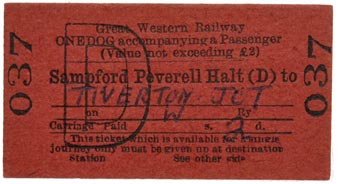 Great Western Railway
ONE DOG accompanying a Passenger
(Value not exceeding £2)
Sampford Peverell Halt (D) to
TIVERTON JCT
on
W
Carriage Paid s. 3 d.
This ticket which is available for a single
journey only must be given up at destination
Station See other side
037
037
D